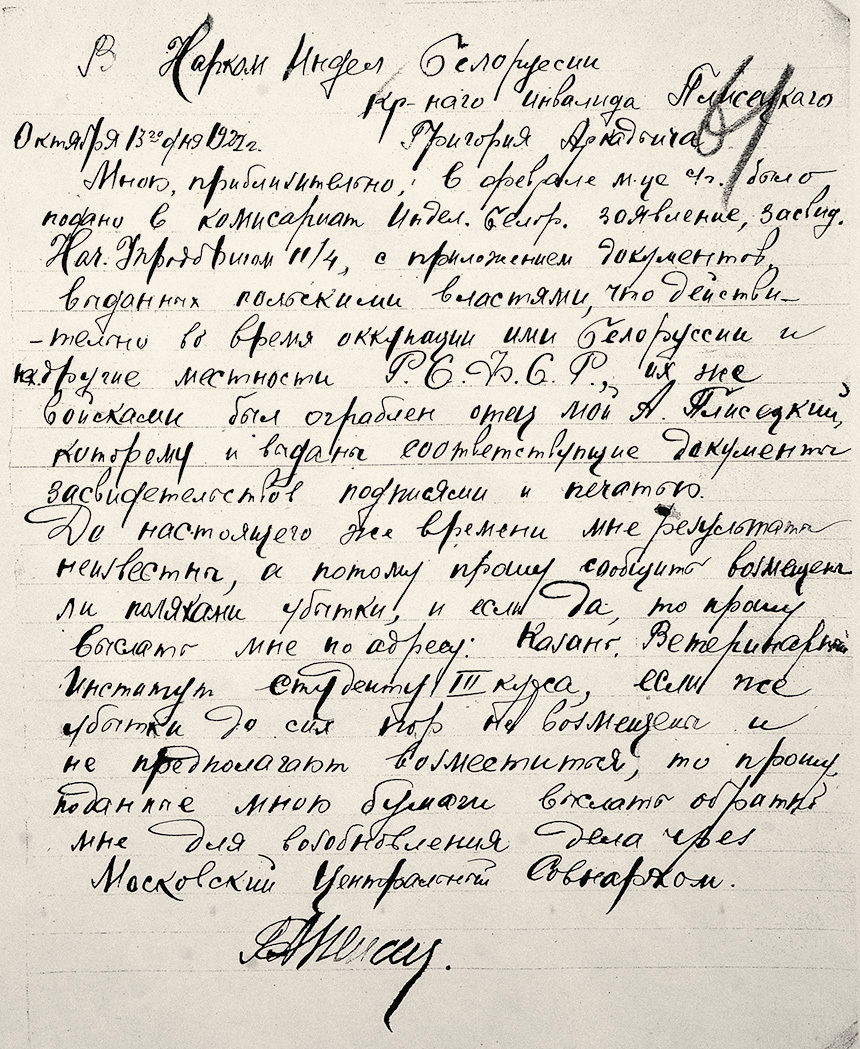 В Нарком Индел Белоруссии
кр-наго инвалида Плисецкаго
Октября 13го дня 192 г. Григория Аркадьича
Мною, приблизительно, в феврале м-це с/г. было
подано в комисариат Индел. Белор. заявление, засвид.
Нач. 11/4, с приложением документов,
выданных польскими властями, что действи-
-тельно во время оккупации ими Белоруссии и
другие местности Р.С.Ф.С.Р., их же
войсками был ограблен отец мой А. Плисецкий,
которому и выданы соответствующие документы
засвидетельствов подписями и печатью.
До настоящего же времени мне результаты
неизвестны, а потому прошу сообщить возмещены
ли поляками убытки, и если да, то прошу
выслать мне по адресу: Казань. Ветеринарный
Институт студенту III курса, если же
убытки до сих пор не возмещены и
не предполагают возместиться, то прошу,
поданные мною бумаги выслать обратно
мне для возобновления дела чрез
Московский Центральный Совнархом.